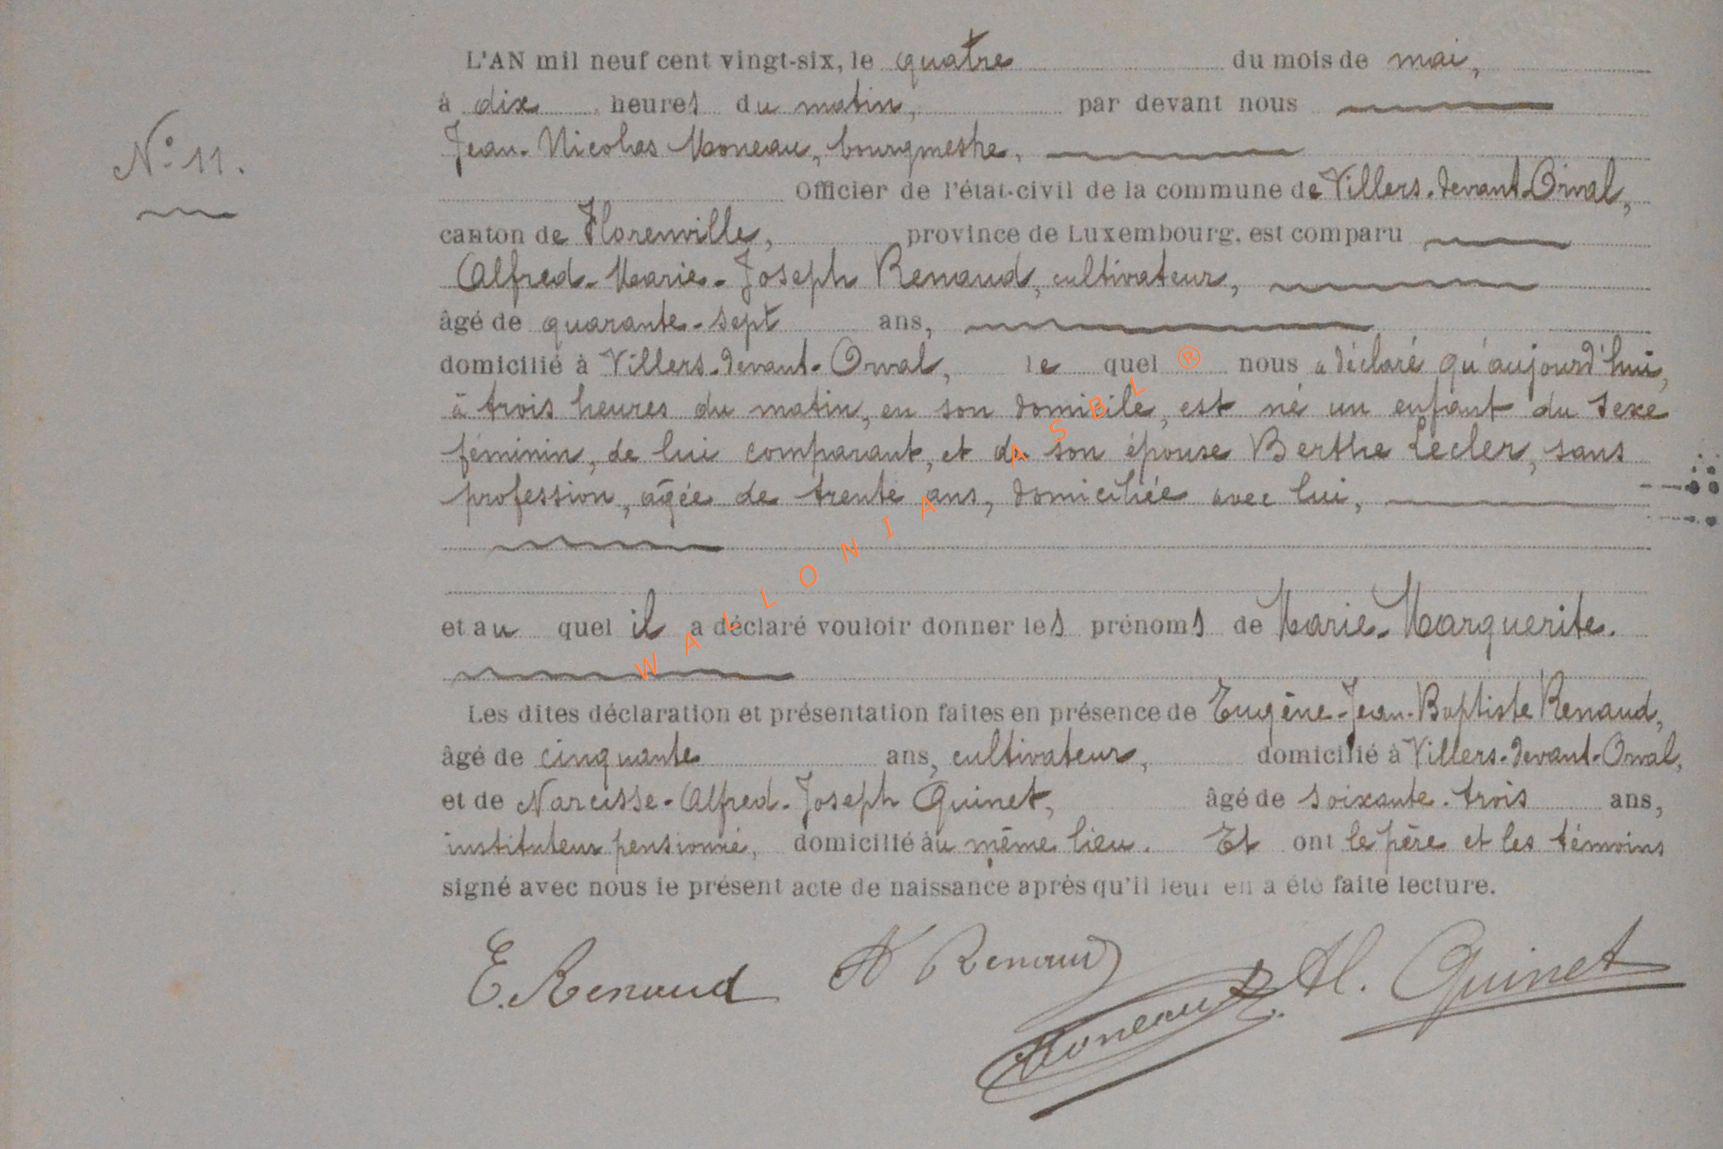 L'AN mil neuf cent vingt-six, le quatre du mois de mai,
à dix heures du matin, par devant nous
N° 11.
Jean-Nicolas Moneau, bourgmestre,
Officier de l'état-civil de la commune de Villers-devant-Orval,
canton de Florenville, province de Luxembourg, est comparu
Alfred-Marie-Joseph Renaud, cultivateur,
âgé de quarante-sept ans,
domicilié à Villers-devant-Orval, le quel nous a déclaré qu'aujourd'hui,
à trois heures du matin, en son domicile, est né un enfant du sexe
féminin, de lui comparant, et de son épouse Berthe Lecler, sans
profession, agée de trente ans, domiciliée avec lui,
et au quel il a déclaré vouloir donner les prénoms de Marie-Marguerite.
Les dites déclaration et présentation faites en présence de Eugène-Jean-Baptiste Renaud,
âgé de cinquante ans, cultivateur, domicilié à Villers-devant-Orval,
et de Narcisse-Alfred-Joseph Quinet, âgé de soixante-trois ans,
instituteur pensionné, domicilié au même lieu. Et ont le père et les témoins
signé avec nous le présent acte de naissance après qu'il leur en a été faite lecture.
E. Renaud A Renaud Al. Quinet
Moneau
WALLONIA ASBL ®